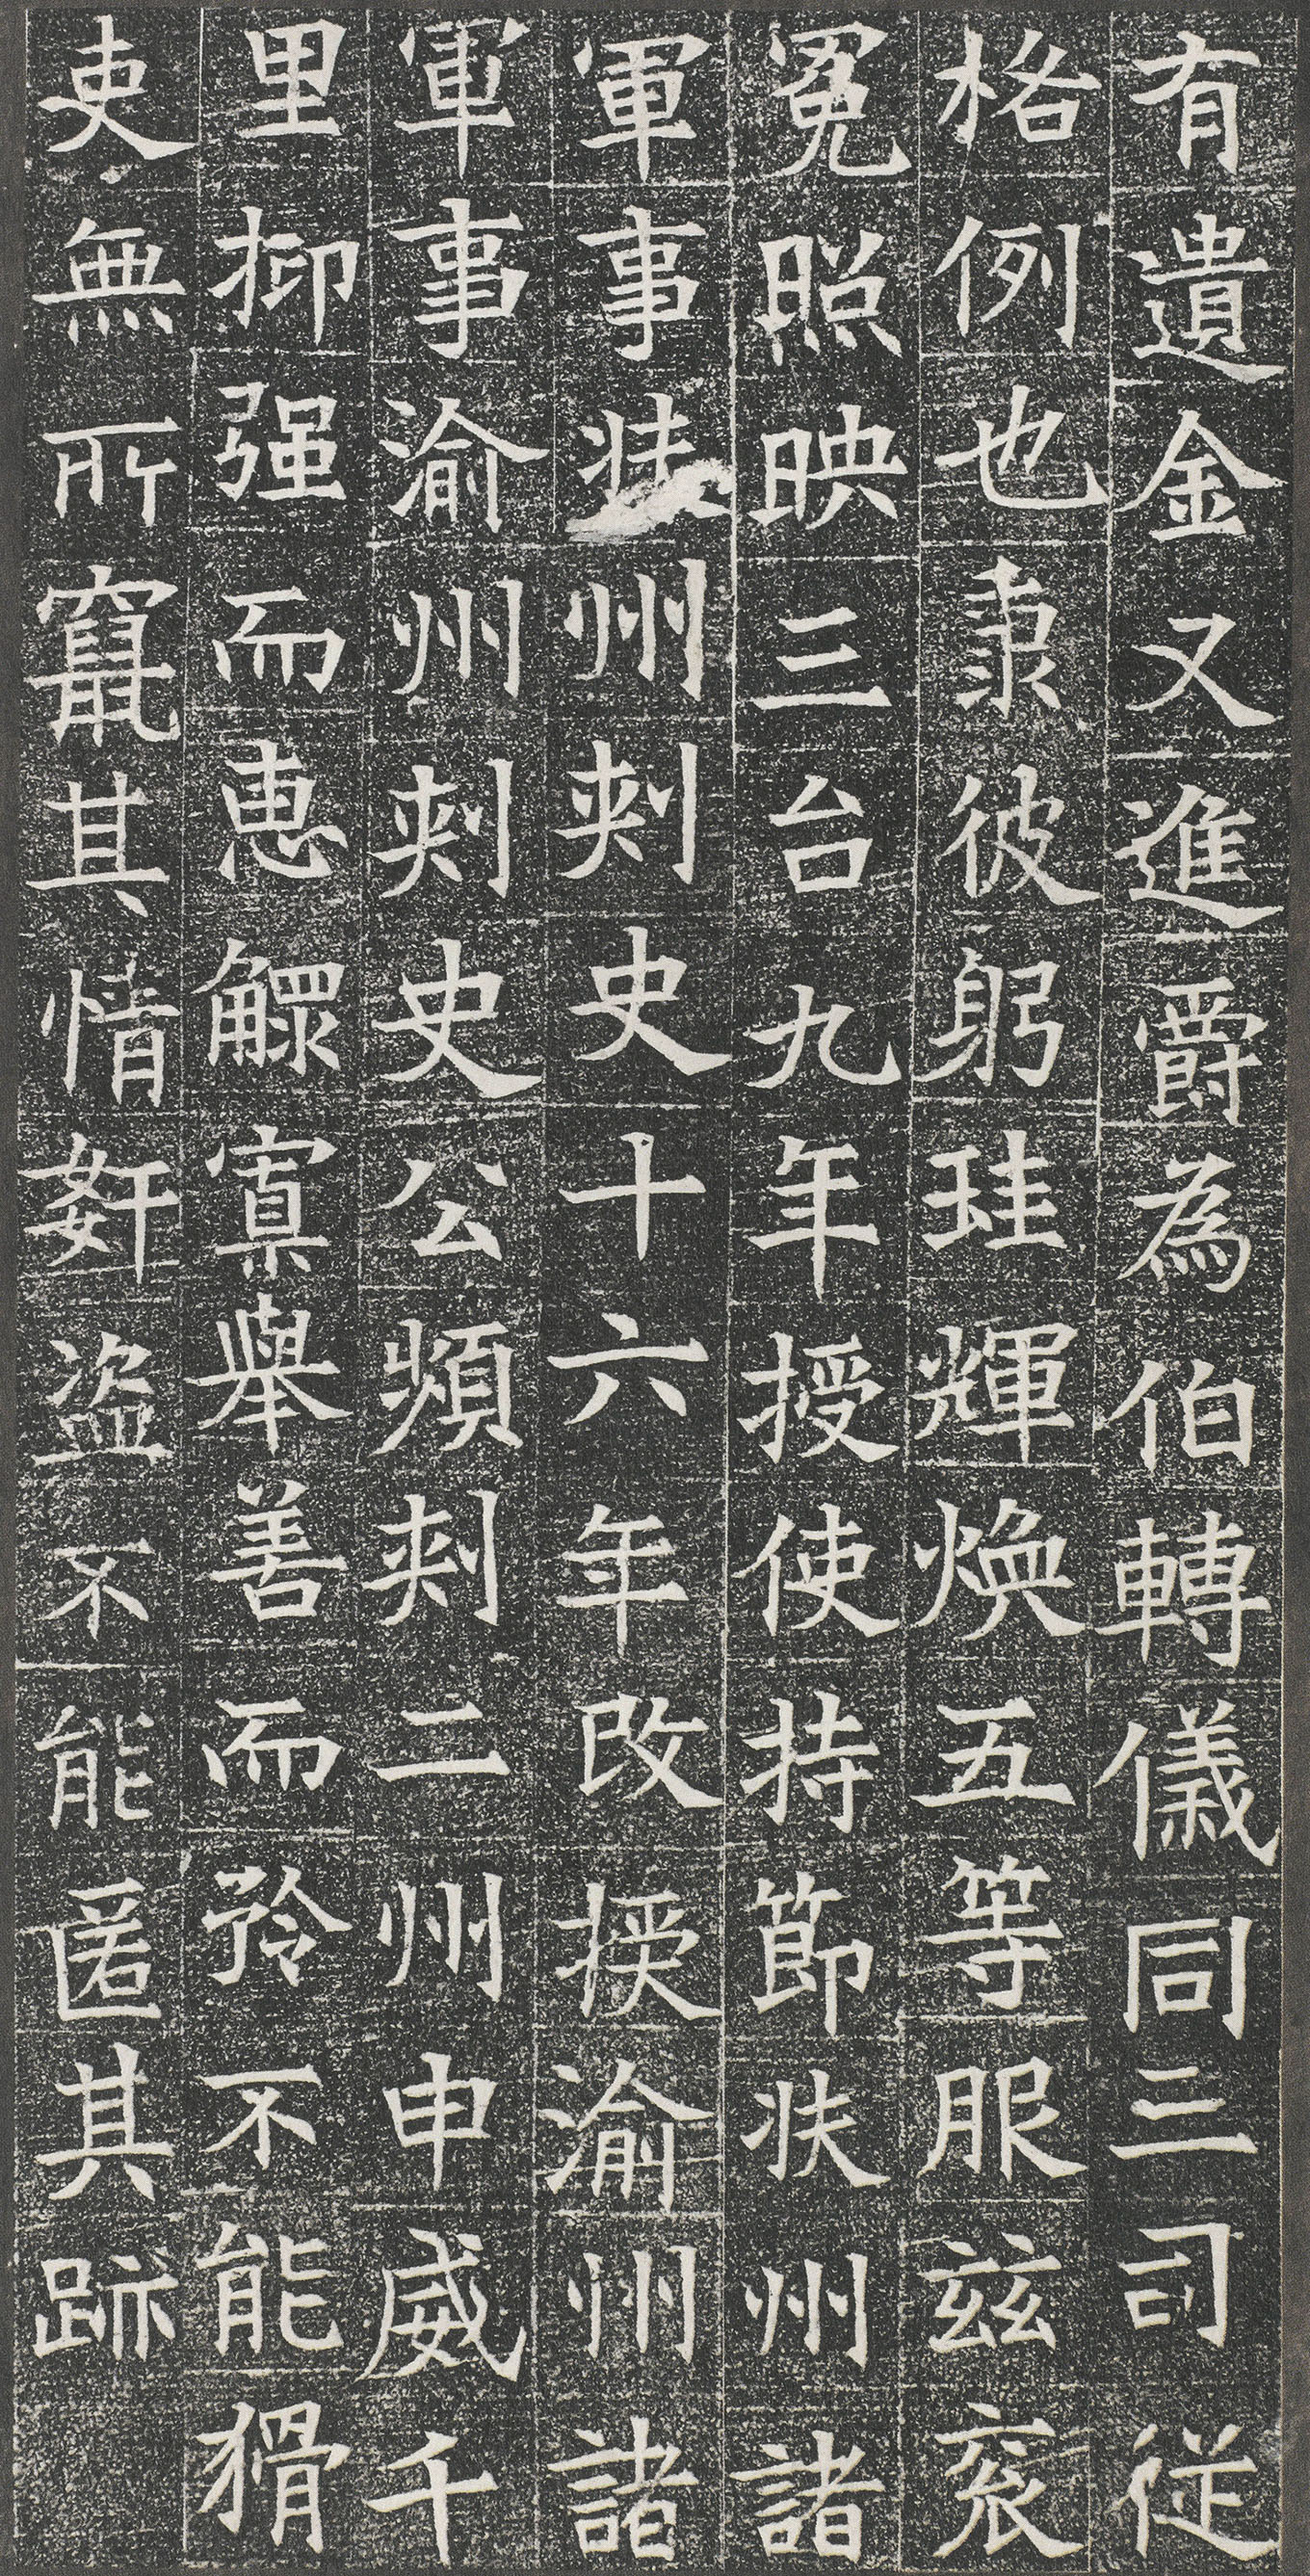 有遺金又進爵為伯轉儀同三司從
格例也隶彼躬珪輝煥五等服兹衮
冕照映三台九年授使持節状州諸
軍事州刺史十六年改授渝州諸
軍事渝州刺史公頻刺二州申威千
里抑强而恵鰥寡舉善而矜不能猾
吏無所竄其情奸盗不能匿其跡